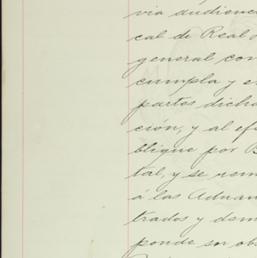 via audienc
cal de Real
general con
cumpla y e
partes dicho
ción, y al efe
blique por B
tal, y se rem
á las Aduan
trados y dem
ponde su ob